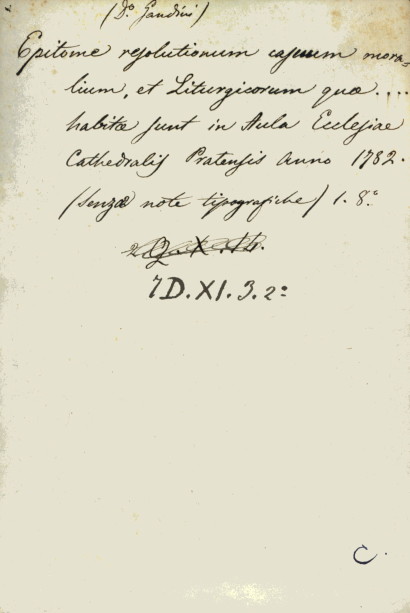 (D.º Gandini)
Epitome resolutionum casuum mora=
lium, et Liturgicorum quæ ....
habitæ sunt in Aula Ecclesiae
Cathedralis Pratensis Anno 1782.
(senza note tipografiche) 1. 8.º
7 D. XI. 3. 2º
C.